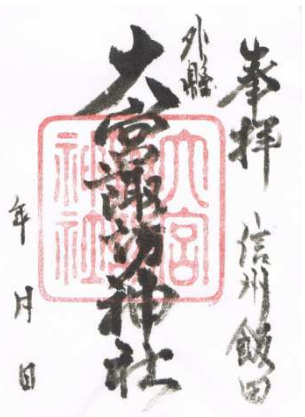 奉拝 信州飯田
外縣
大宮諏訪神社
大宮
神社
年 月 日